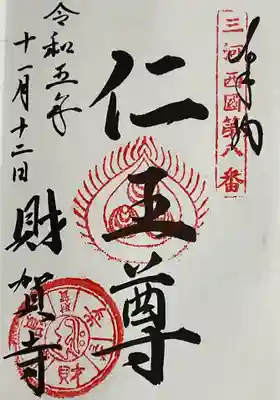 奉拝
三河西國第八番
仁王尊
令和五年
十一月十二日
財賀寺